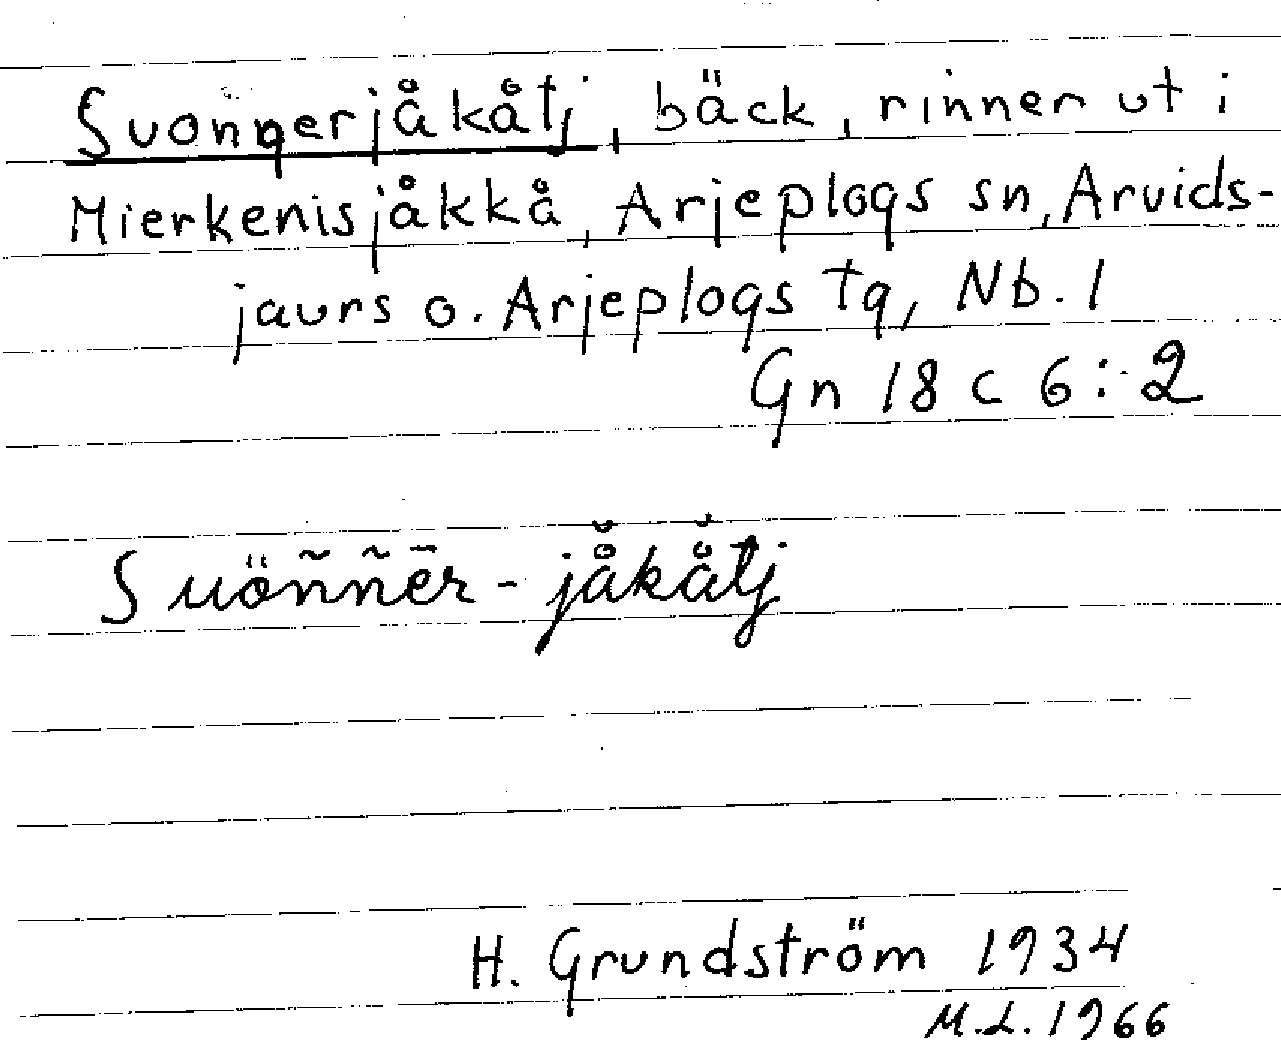 Suonŋerjåkåtj, bäck, rinner ut i
Mierkenisjåkkå, Arjeplogs sn, Arvids-
jaurs o. Arjeplogs tg, Nb. l
Gn 18 c 6:2
Suöññēr-jåkåtj
H. Grundström 1934
M.L. 1966